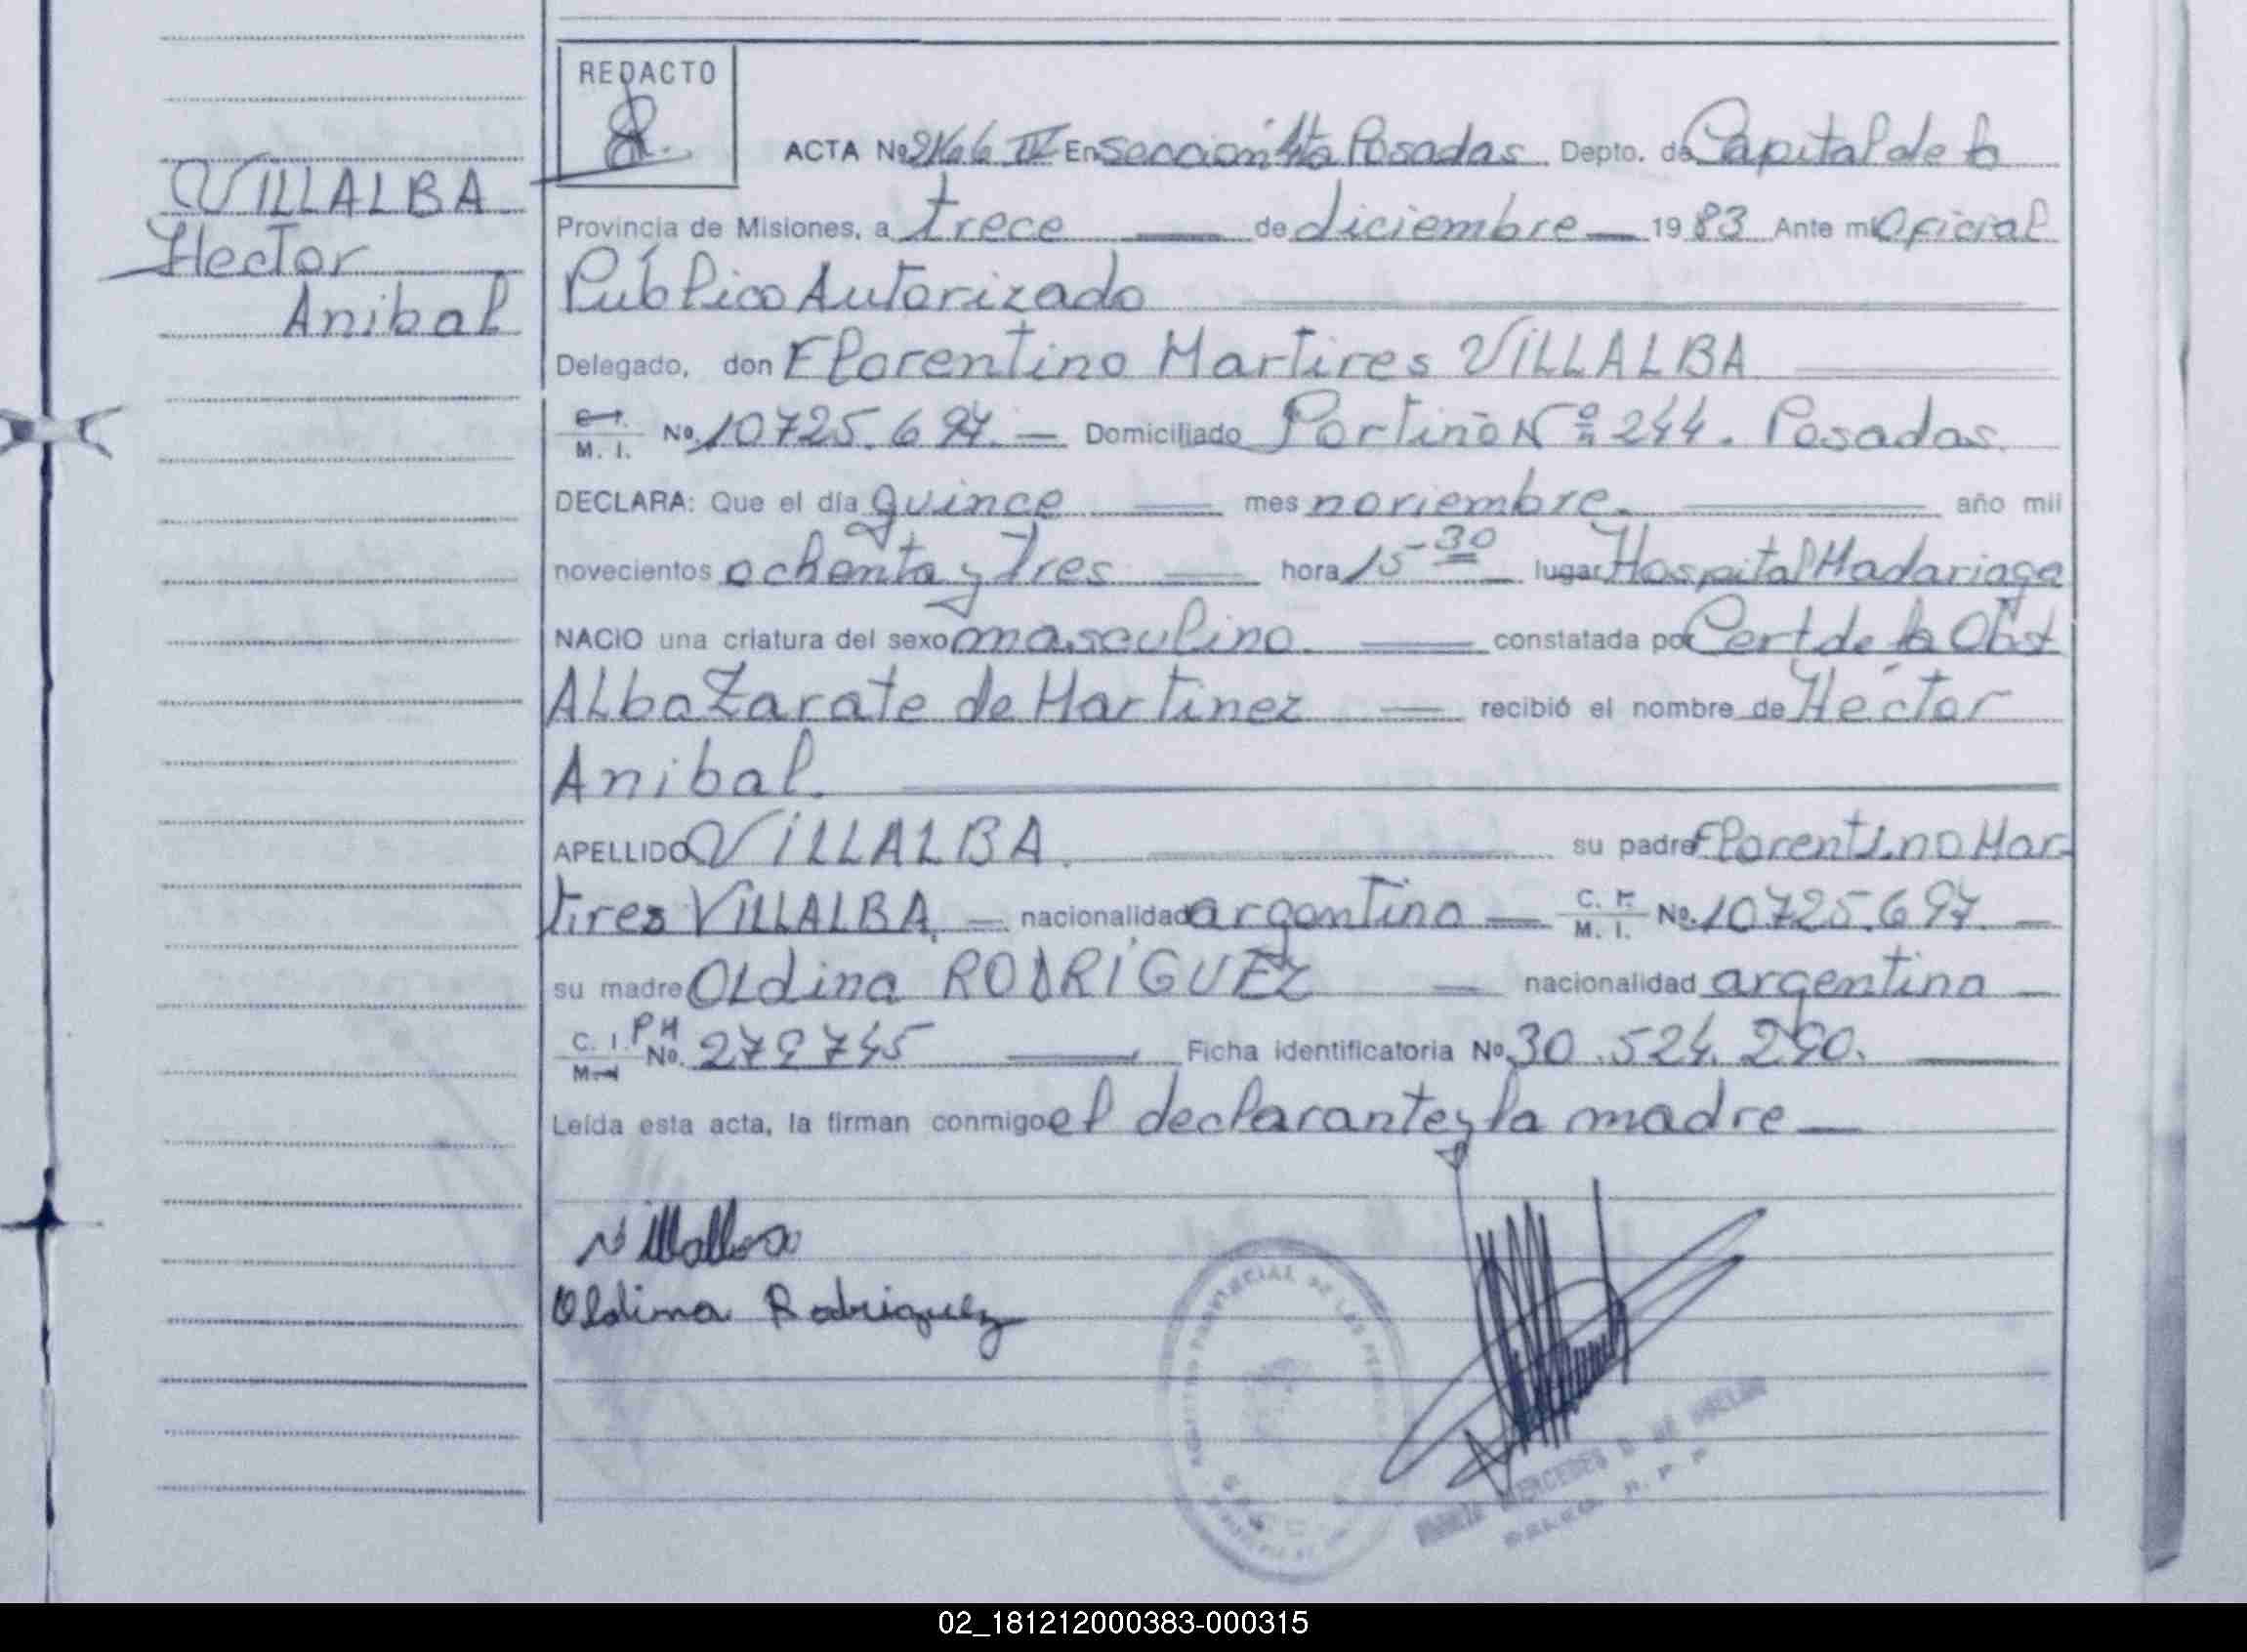 REDACTO
ACTA Nº 2166 IV En sección 4ta Posadas Depto. de Capital de la
VILLALBA
Provincia de Misiones, a trece de diciembre 1983 Ante mi Oficial
Hector
Público Autorizado
Anibal
Delegado, don Florentino Martires VILLALBA
C. I. M. I. Nº. 10725.697. Domiciliado Portiño Nº 244. Posadas.
DECLARA: Que el día quince mes noviembre. año mil
novecientos ochenta y tres hora 15-30 lugar Hospital Madariaga
NACIO una criatura del sexo masculino. constatada por Cert de la Obst
ALba Zarate de Martinez recibió el nombre de Héctor
Anibal.
APELLIDO VILLALBA. su padre Florentino Mar-
tires VILLALBA. nacionalidad argentino C. I. M. I. Nº. 10.725.697.
su madre OLdina RODRÍGUEZ nacionalidad argentina
C. I. M. I. PM Nº. 279745 Ficha identificatoria Nº 30.524.290.
Leída esta acta, la firman conmigo el declarante y la madre
Villalba
Oldina Rodriguez
PROVINCIAL DE LAS
MERCEDES D. DE
02_181212000383-000315